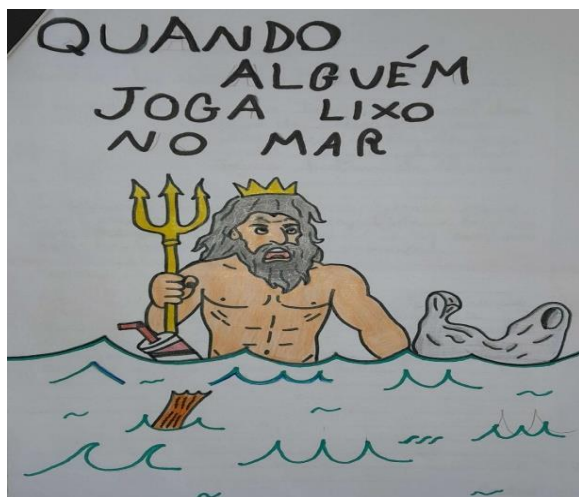 QUANDO
ALGUÉM
JOGA LIXO
NO MAR